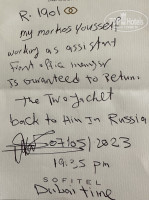 R. 1901
my markos youssef
working as assistant
first office manager
is guranteed to Return
The Two Jacket
back to Him In Russia
07/03/2023
19:25 pm
SOFITEL
Dubai time